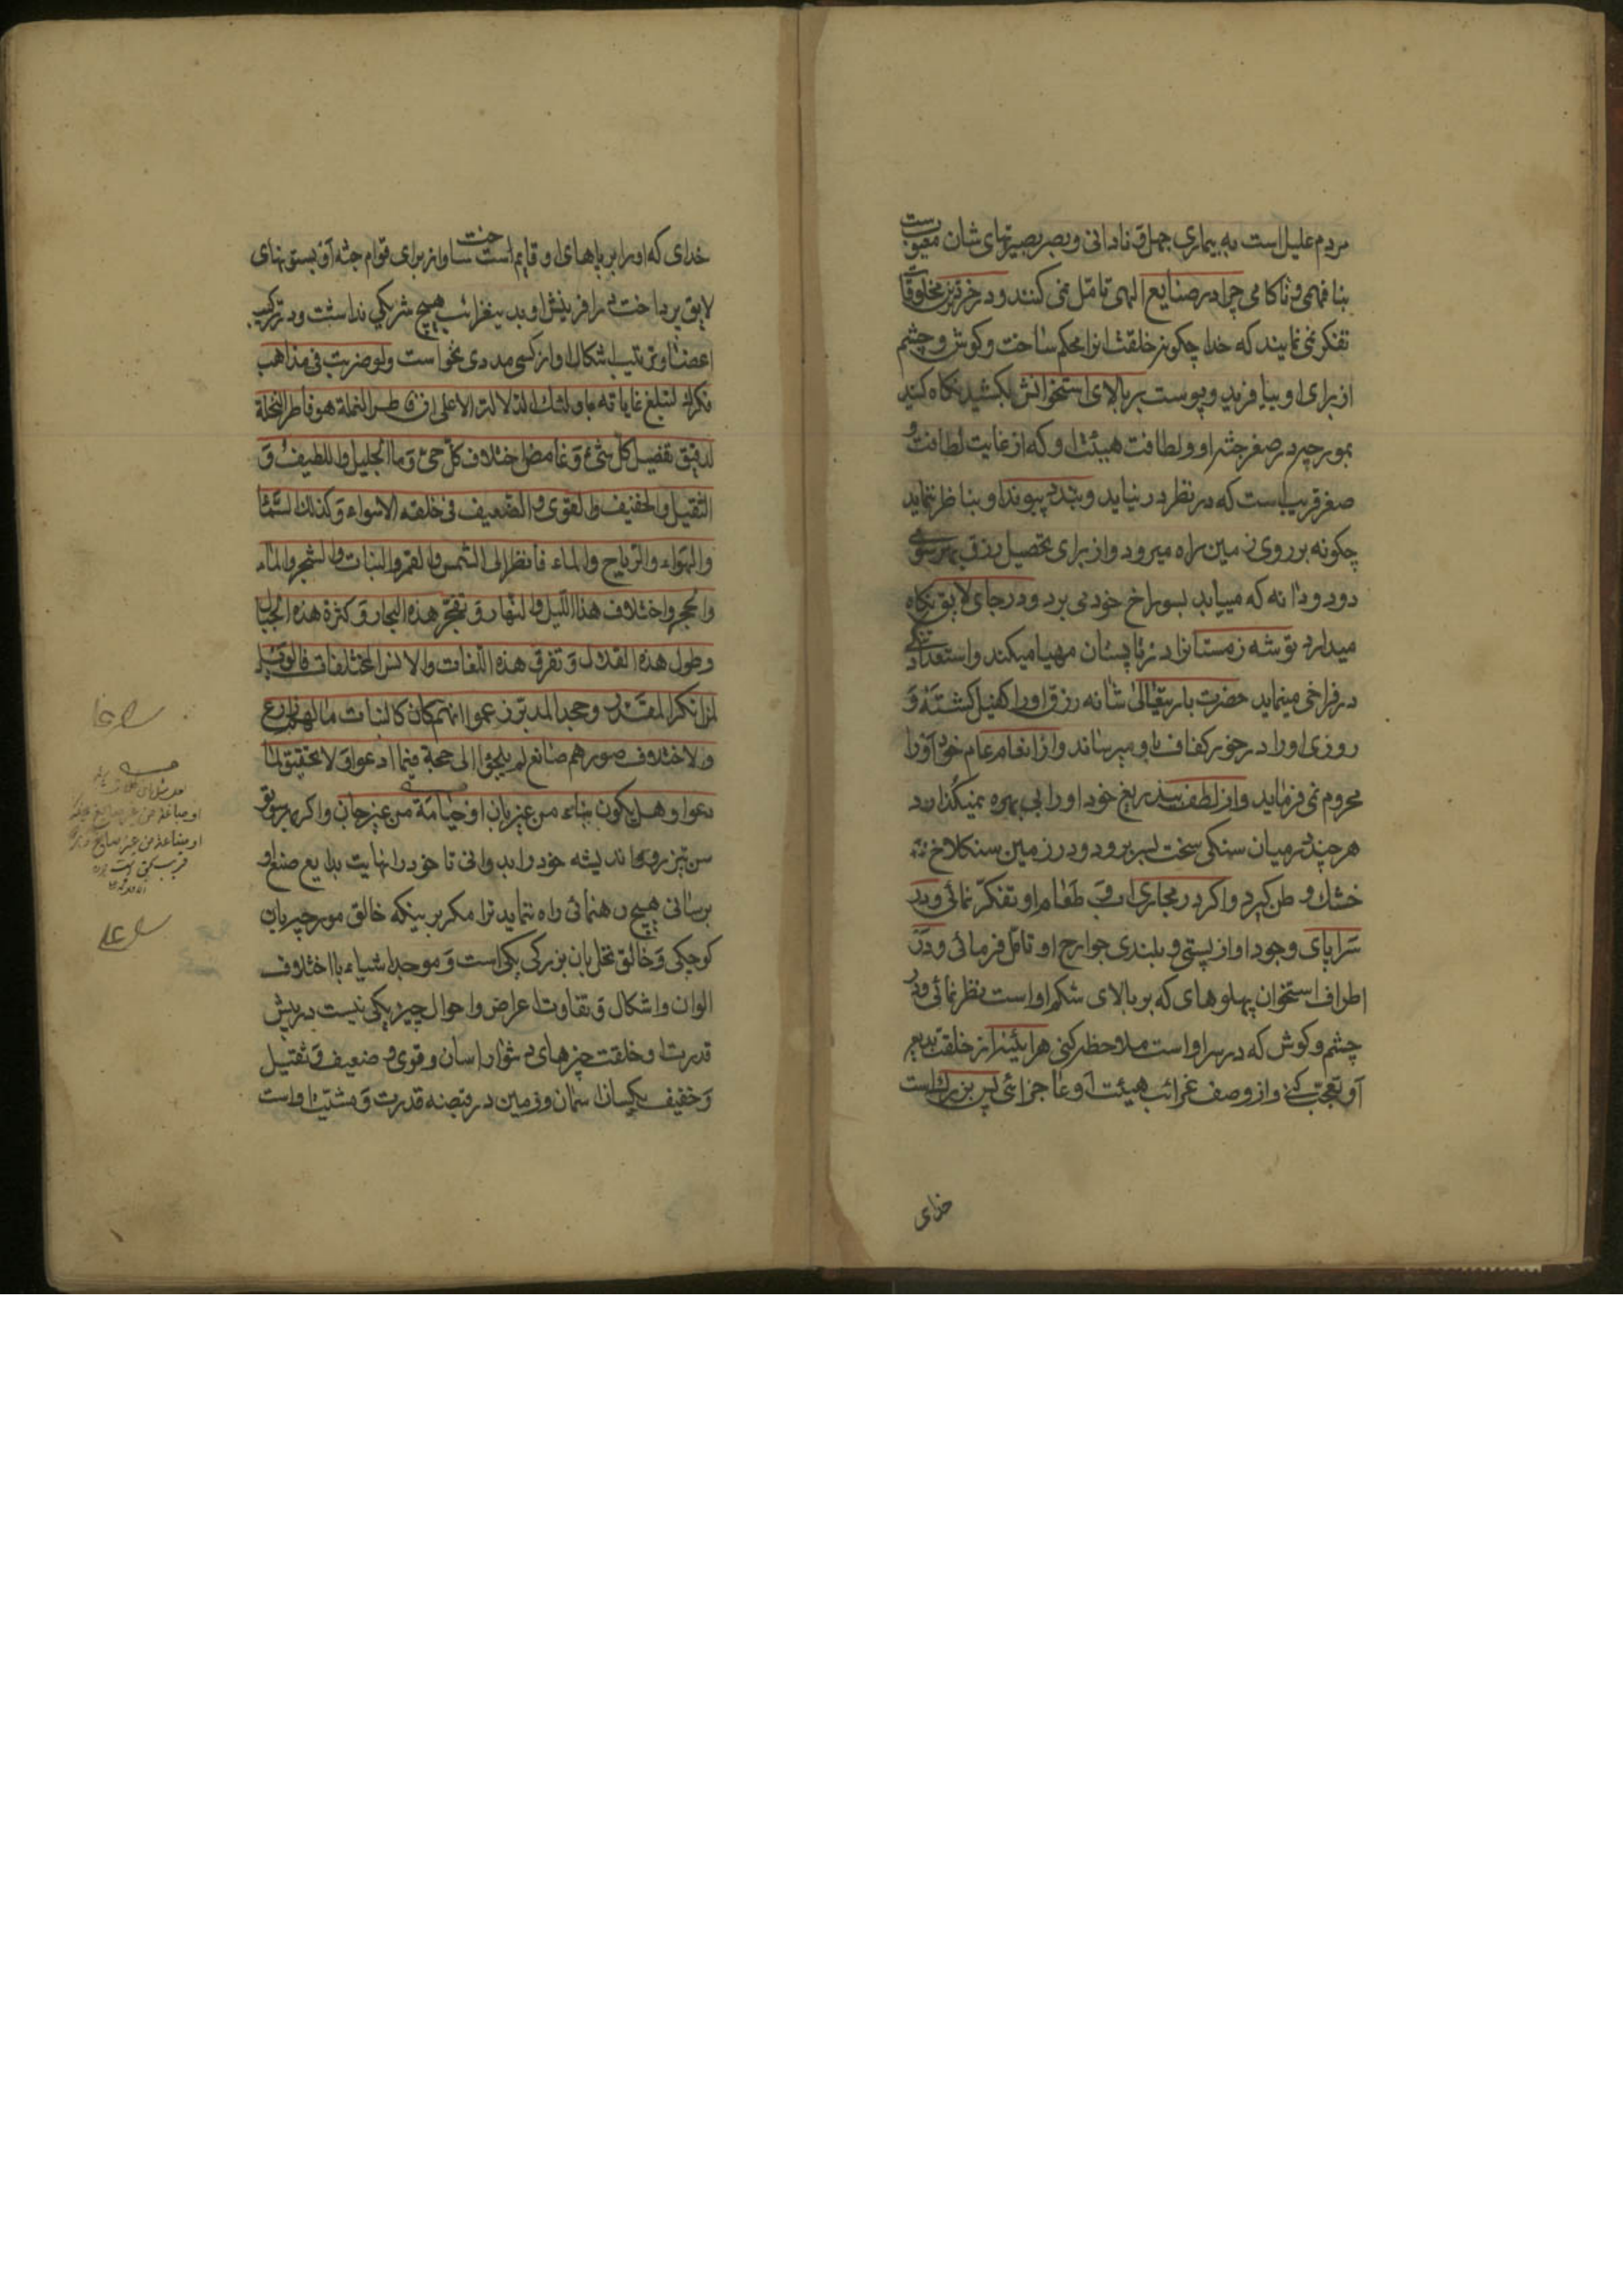 مردم علیل است به بیماری جهل و نادانی و بصر بصیرتهای شان معیوبست
بنا فهمی و ناکامی چرا در صنایع الهی تامّل نمی کنند و در خردترین مخلوقات
تفکر نمی نمایند که خدا چکونه خلقت انرا محکم ساخت و کوش و چشم
از برای او بیافرید و پوست بر بالای استخوانش بکشید نکاه کنید
بمورچه در صغر جثه او و لطافت هیئت او که از غایت لطافت و
صغر قریب است که در نظر در نیاید و بناظر ننماید
چکونه بر روی زمین راه میرود و از برای تحصیل رزق بهر سوی
دود و دانه که میبابد بسوراخ خود می برد و در جای لایق نکاه
میدارد توشه زمستانرا در تابستان مهیا میکند و استعداد تنکی
در فراخی مینماید حضرت باریتعالی شانه رزق او را کفیل کشته و
روزی او را در خور کفاف باو میرساند و از انعام عام خود آنرا
محروم نمی فرماید و از لطف بیدریغ خود او را بی بهره نمیکذارد
هر چند در میان سنکی سخت بسر برد و در زمین سنکلاخ
خشک وطن کیرد و اکر در مجاری طعام او تفکّر نمائی و در
سراپای وجود او از پستی و بلندی جوارح او تامّل فرمائی و در
اطراف استخوان پهلوهای که بر بالای شکم او است نظر نمائی و در
چشم و کوش که در سر او است ملاحظه کنی هر آئینه از خلقت بدیع
او تعجّب کنی و از وصف غرائب هیئت او عاجز ائی پس بزرک است
خدای
خدای که او را بر پاهای او قایم ساخت و از برای قوام جثه او بستونهای
لایق پرداخت در افرینش او بدینغرائب هیچ شریکی نداشت و در ترکیب
اعضا و ترتیب اشکال او از کسی مددی نخواست ولو ضربت فی مذاهب
فکرک لتبلغ غایاته ما دلتک الدلالة الا علی ان فاطر النملة هو فاطر النخلة
لدقیق تفصیل کلّ شیء و غامض اختلاف کلّ حیّ و ما الجلیل و اللطیف و
الثقیل و الخفیف و القوی و الضعیف فی خلقه الا سواء و کذلک السّماء
و الهواء و الریاح و الماء فانظر الی الشمس و القمر و النبات و الشجر و الماء
و الحجر و اختلاف هذا اللیل و النهار و تفجّر هذه البحار و کثرة هذه الجبال
و طول هذه القلال و تفرق هذه اللغات و الالسن المختلفات فالویل
لمن انکر المقدر و جحد المدبر زعموا انهم کالنبات ما لهم زارع
و لا اختلاف صورهم صانع لم یلجؤا الی حجة فیما ادعوا و لا تحقیق لما
دعوا و هل یکون بناء من غیر بان او جنایة من غیر جان و اکر بر ستور
تیز رو اندیشه خود را بدوانی تا خود را نهایت بدایع صنع او
برسانی هیچ رهنمائی راه ننماید ترا مکر بر اینکه خالق مورچه بان
کوچکی و خالق نخل بان بزرکی یکی است و موجد اشیاء با اختلاف
الوان و اشکال و تفاوت اعراض و احوال جز یکی نیست در پیش
قدرت او خلقت چیزهای دشوار و اسان و قوی و ضعیف و ثقیل
و خفیف یکسان اسمان و زمین در قبضه قدرت و مشیّت او است